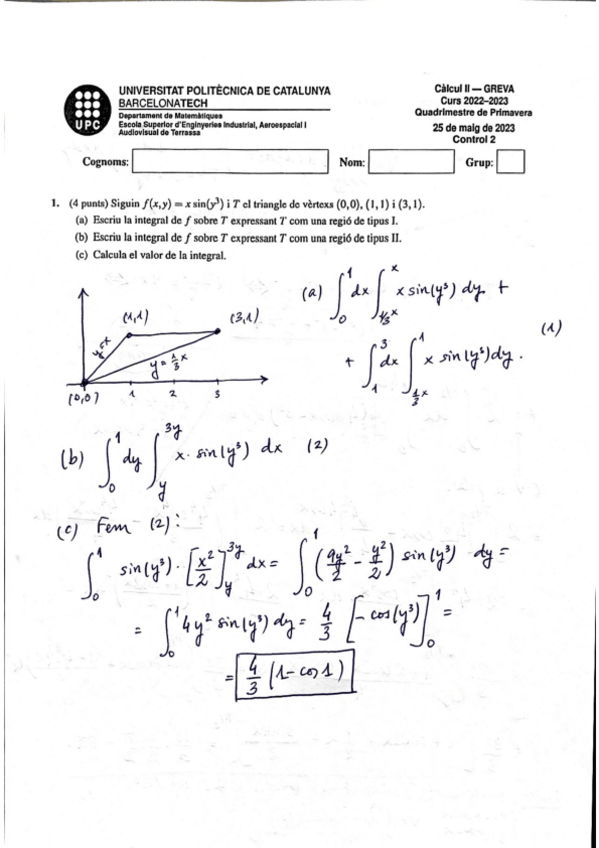 UNIVERSITAT POLITÈCNICA DE CATALUNYA
BARCELONATECH
Departament de Matemàtiques
Escola Superior d'Enginyeries Industrial, Aeroespacial i
Audiovisual de Terrassa
UPC
Càlcul II — GREVA
Curs 2022–2023
Quadrimestre de Primavera
25 de maig de 2023
Control 2
Cognoms: Nom: Grup:
1. (4 punts) Siguin f(x,y) = x sin(y³) i T el triangle de vèrtexs (0,0), (1,1) i (3,1).
(a) Escriu la integral de f sobre T expressant T com una regió de tipus I.
(b) Escriu la integral de f sobre T expressant T com una regió de tipus II.
(c) Calcula el valor de la integral.
(a) ∫₀¹ dx ∫_{1/3 x}^{x} x sin(y³) dy +
+ ∫₁³ dx ∫_{1/3 x}^{1} x sin(y³) dy. (1)
(1,1) (3,1)
y=x
y = 1/3 x
(0,0) 1 2 3
(b) ∫₀¹ dy ∫_{y}^{3y} x · sin(y³) dx (2)
(c) Fem (2):
∫₀¹ sin(y³) · [x²/2]_{y}^{3y} dx = ∫₀¹ (9y²/2 − y²/2) sin(y³) dy =
= ∫₀¹ 4y² sin(y³) dy = 4/3 [−cos(y³)]₀¹ =
= 4/3 (1 − cos 1)